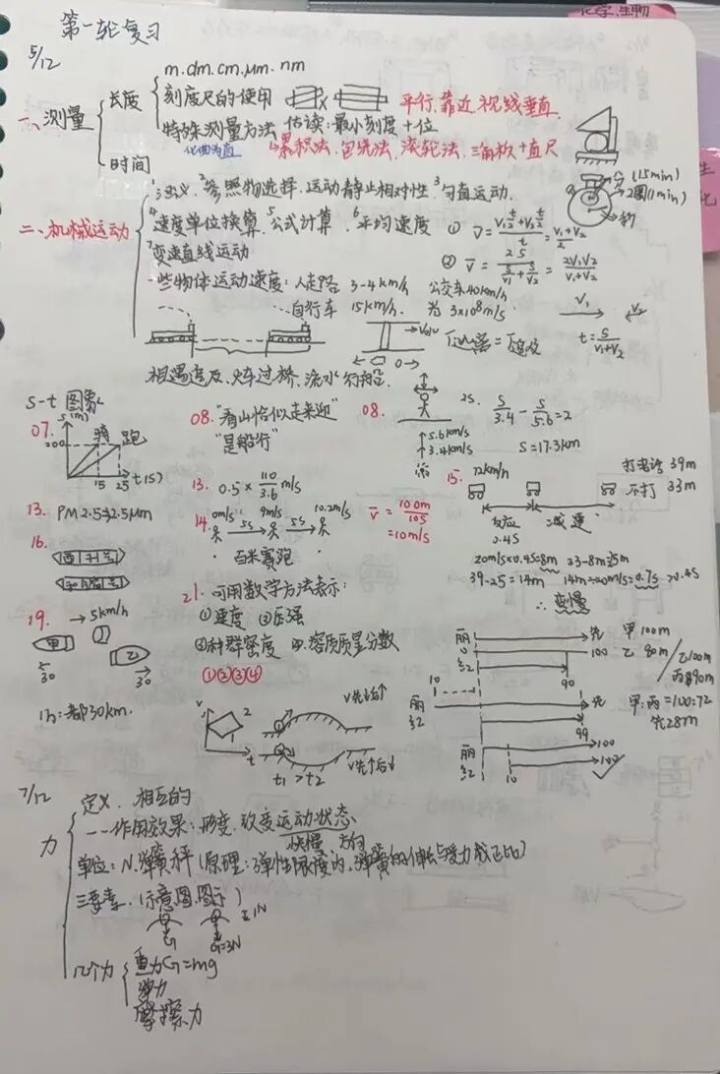 化学、生物
第一轮复习
5/12
一、测量
长度
m.dm.cm.μm.nm
刻度尺的使用
平行.靠近.视线垂直
特殊测量方法 估读:最小刻度+1位
化曲为直
累积法、包络法、滚轮法、三角板+直尺
时间
(15min)
2圈(1min)
二、机械运动
2参照物选择.运动静止相对性 3匀直运动.
4速度单位换算.5公式计算.6平均速度
① v̄= (v₁t/2+v₂t/2)/t = (v₁+v₂)/2
7变速直线运动
② v̄= 2S/(S/v₁+S/v₂) = 2v₁v₂/(v₁+v₂)
一些物体运动速度:人走路 3-4km/h 公交车40km/h
自行车 15km/h. 光 3×10⁸m/s
v₁ v₂
t=S/(v₁+v₂)
相遇追及.火车过桥.流水行船.
S-t 图象
07.
S(m)
200
骑 跑
15 25 t(s)
08."看山恰似走来迎"
"是船行"
08.
5.6km/s
3.4km/s
S/3.4 - S/5.6=2
S=17.3km
13. PM2.5→2.5μm
13. 0.5× 110/3.6 m/s
14. 0m/s 9m/s 10.2m/s
5s 5s
百米赛跑
v̄= 100m/10s
=10m/s
15. 72km/h
打电话 39m
不打 33m
反应 减速
0.4s
20m/s×0.4s=8m 33-8m=25m
39-25=14m 14m÷20m/s=0.7s >0.4s
∴ 变慢
16.
19. →5km/h
甲 乙
30 30
1h:都30km.
21. 可用数学方法表示:
①速度 ②压强
③种群密度 ④.溶质质量分数
①②③④
v t
2
v先↓后↑
t₁>t₂
v先↑后↓
甲100m
乙 90m
乙100m
丙90m
甲:丙=100:72
先28m
10
90
99
100
10
7/12
力
定义、相互的
作用效果:形变.改变运动状态
快慢、方向
单位:N.弹簧秤(原理:弹性限度内,弹簧的伸长与受力成正比)
三要素.(示意图.图示)
G
G=3N
1N
几个力
重力G=mg
弹力
摩擦力